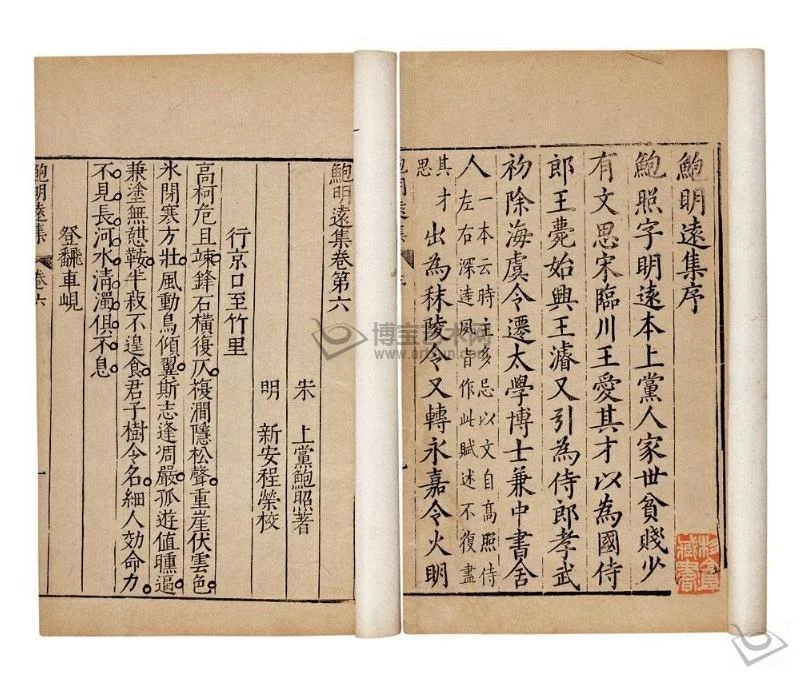 鮑明遠集序
鮑照字明遠本上黨人家世貧賤少
有文思宋臨川王愛其才以為國侍
郎王薨始興王濬又引為侍郎孝武
初除海虞令遷太學博士兼中書舍
人 一本云時主多忌以文自高照侍
左右深達風旨作此賦述不復盡
其才
思
出為秣陵令又轉永嘉令大明
鮑明遠集
藏書
鮑明遠集卷第六
宋 上黨鮑照著
明 新安程榮校
行京口至竹里
高柯危且竦鋒石橫復仄複澗隱松聲重崖伏雲色
氷閉寒方壯風動鳥傾翼斯志逢凋嚴孤遊值曛逼
兼塗無憩鞍半菽不遑食君子樹令名細人効命力
不見長河水清濁俱不息
登翻車峴
鮑明遠集 卷六 一
博宝艺术网
www.artxun.com